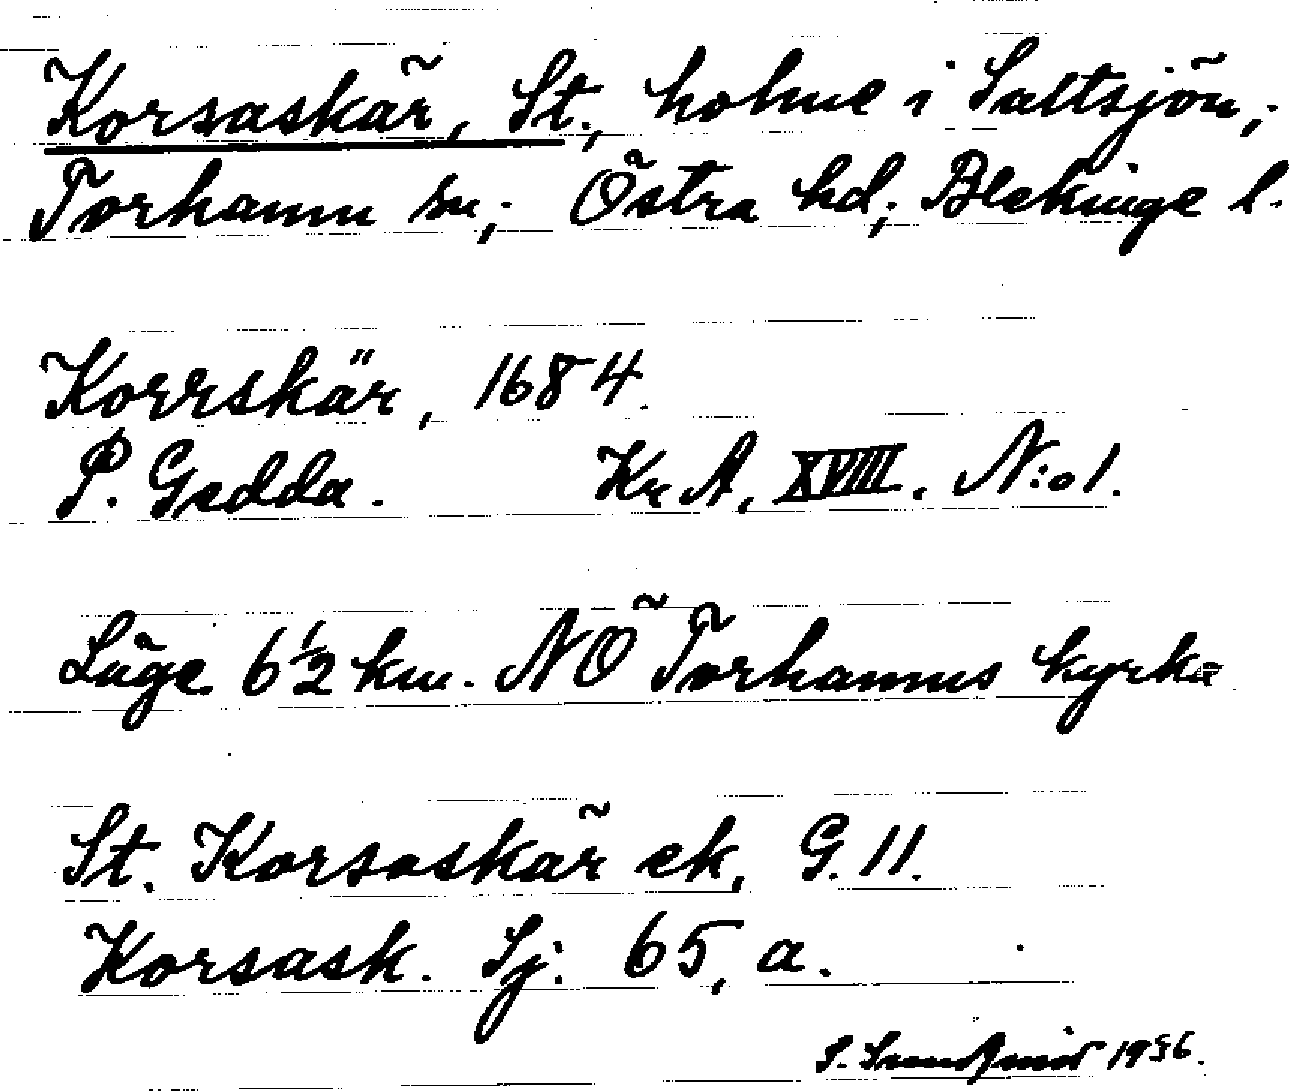 Korsaskär, St., holme i Saltsjön,
Torhamn sn, Östra hd, Blekinge l.
Korrskär, 1684.
P. Gedda. Kr A, XVIII. N:o 1.
Läge 6 1/2 km. NÖ Torhamns kyrka
St. Korsaskär ek. G. 11.
Korsask. Sj: 65, a.
S. 1936.